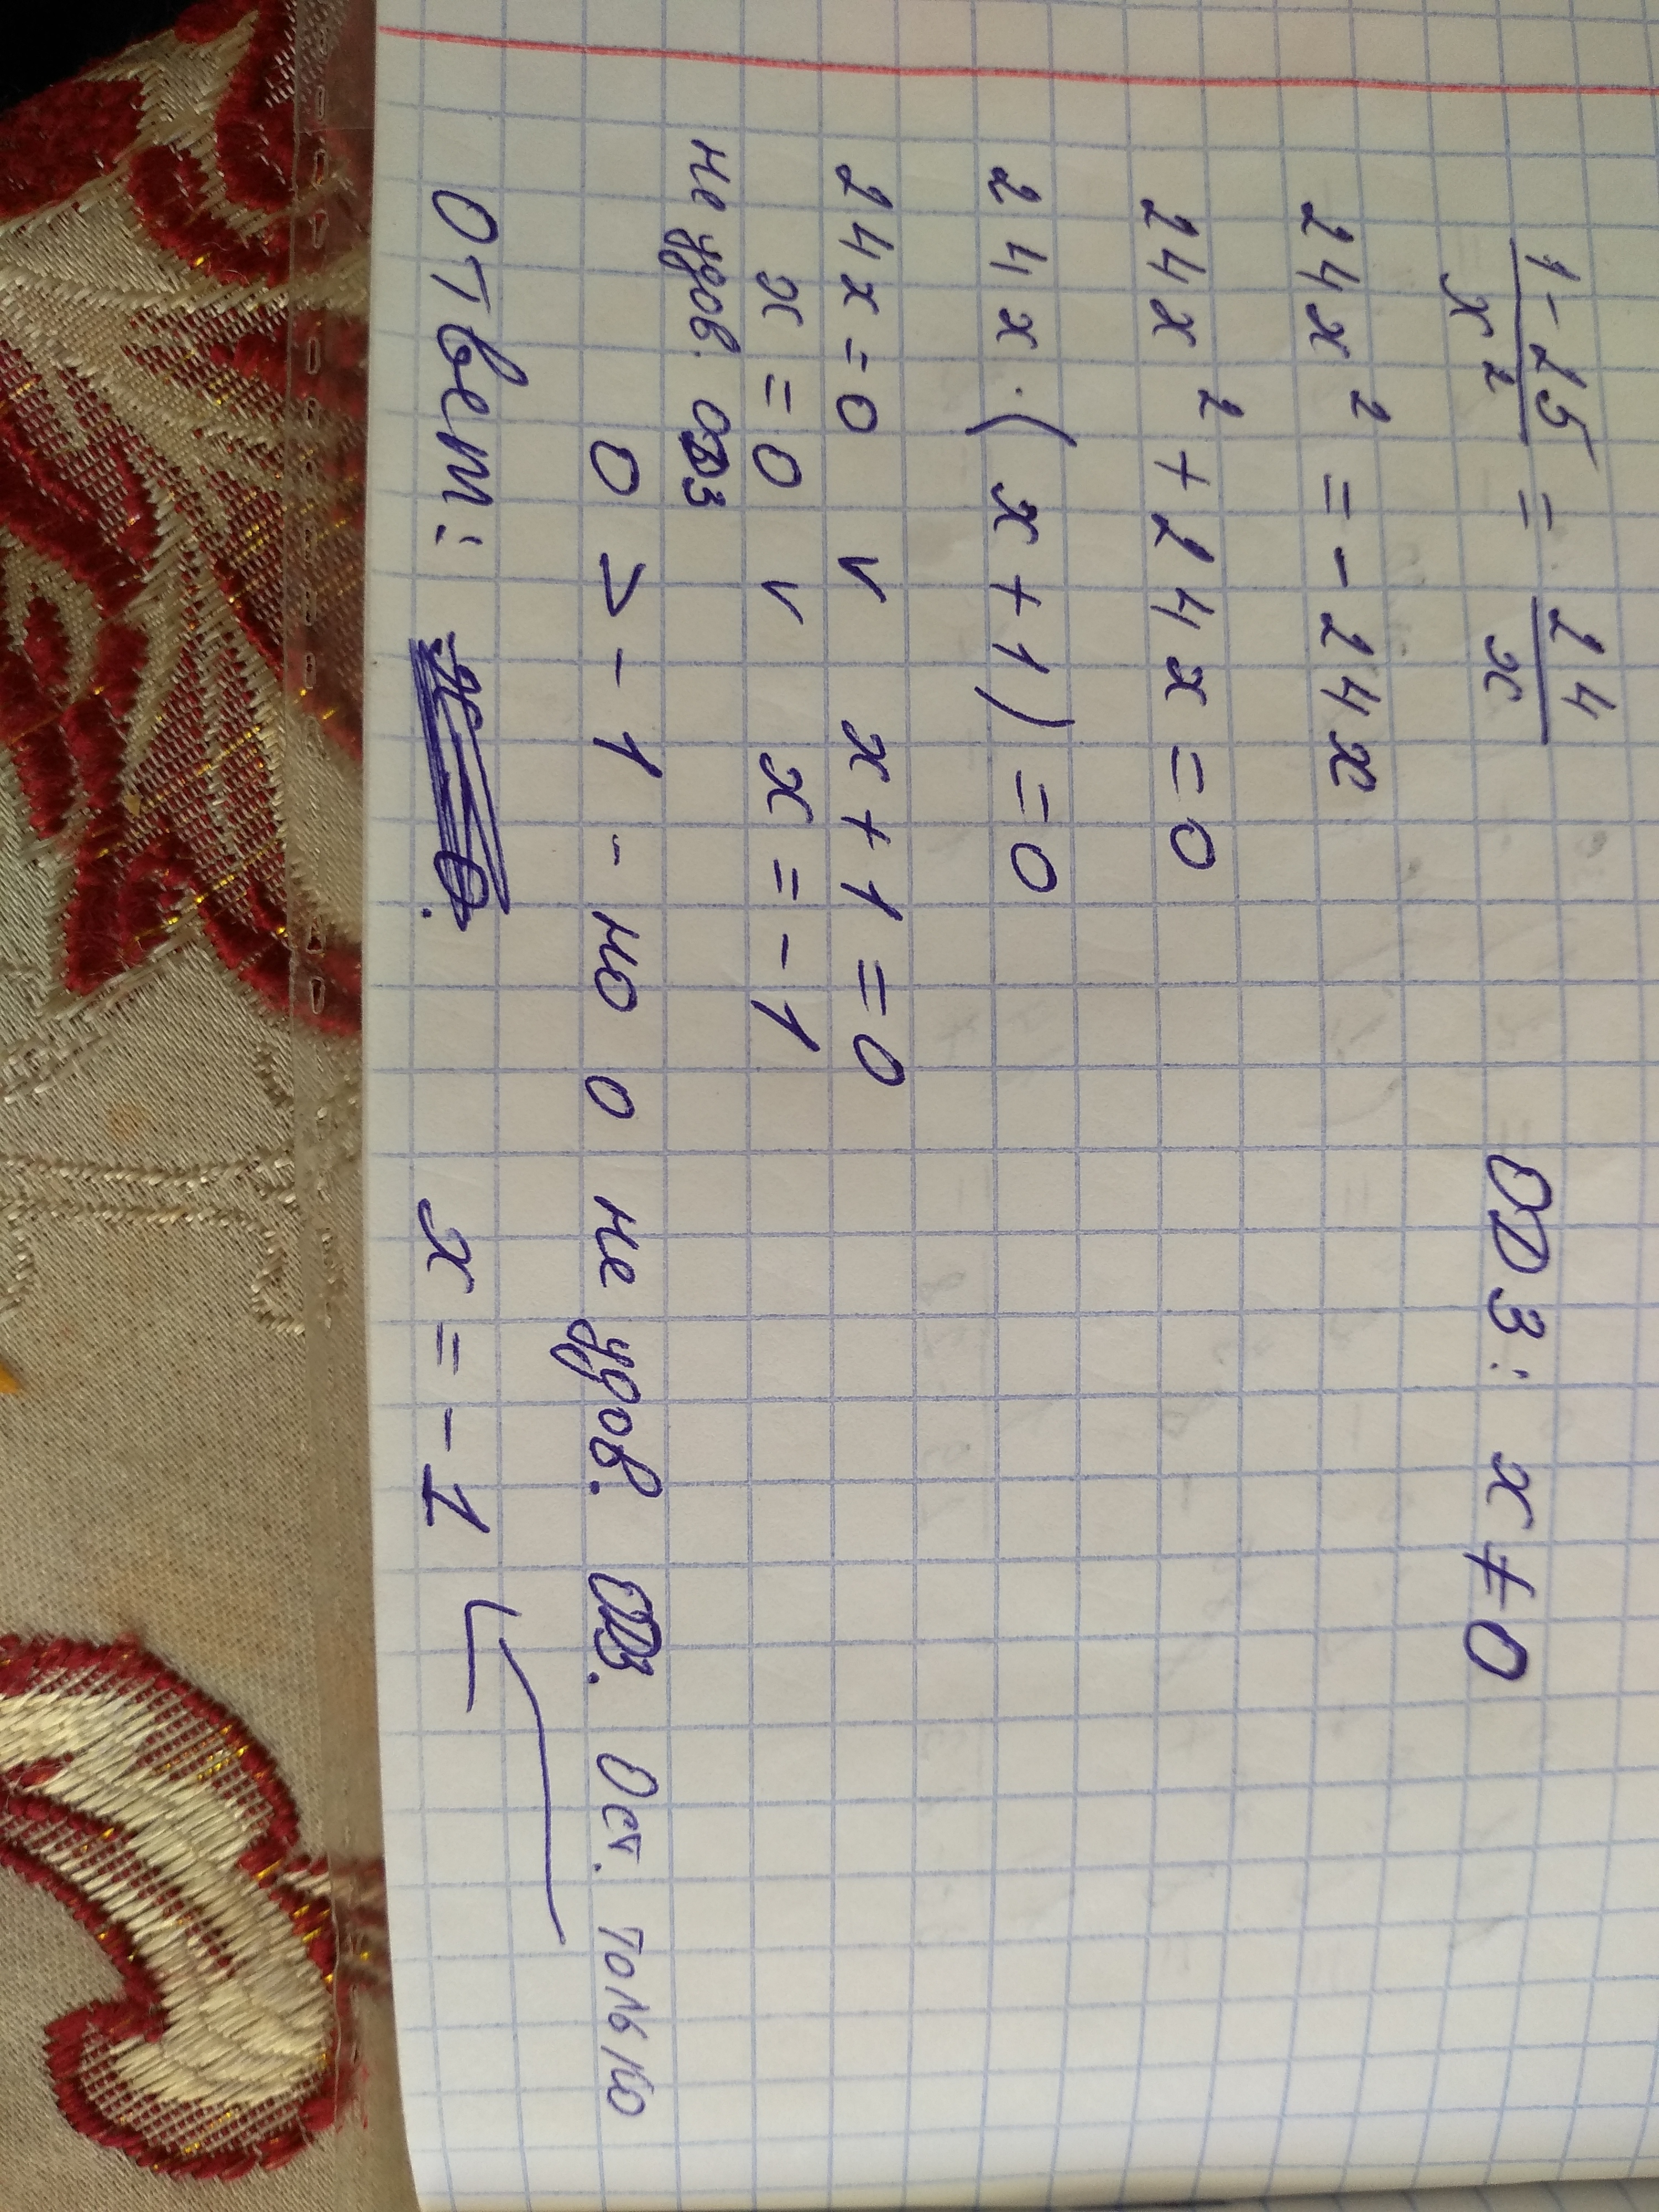 1-25/x² = 24/x ОДЗ: x ≠ 0
24x² = -24x
24x² + 24x = 0
24x · (x + 1) = 0
24x = 0 v x + 1 = 0
x = 0 v x = -1
не удов. ОДЗ
0 > -1 - но 0 не удов. ОДЗ. Ост. только
Ответ: x = -1